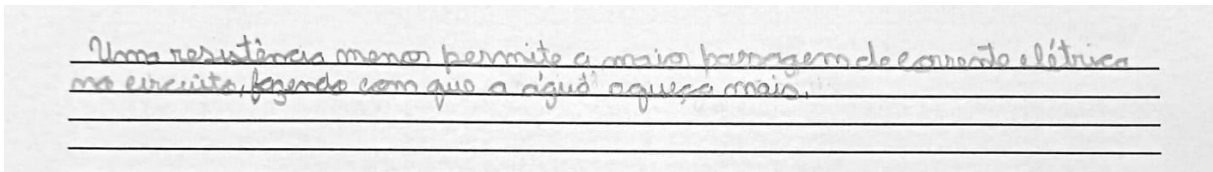 Uma resistência menor permite a maior passagem de corrente elétrica
no circuito, fazendo com que a água aqueça mais.